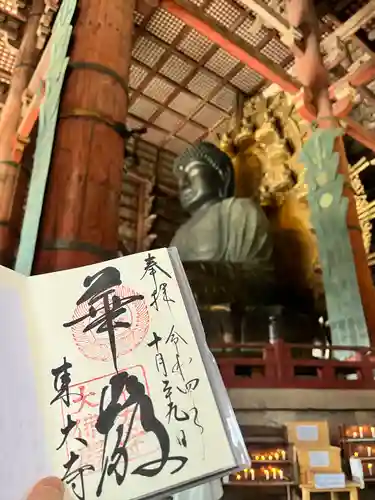 奉拝
令和四年
十月二十九日
華厳
東大寺